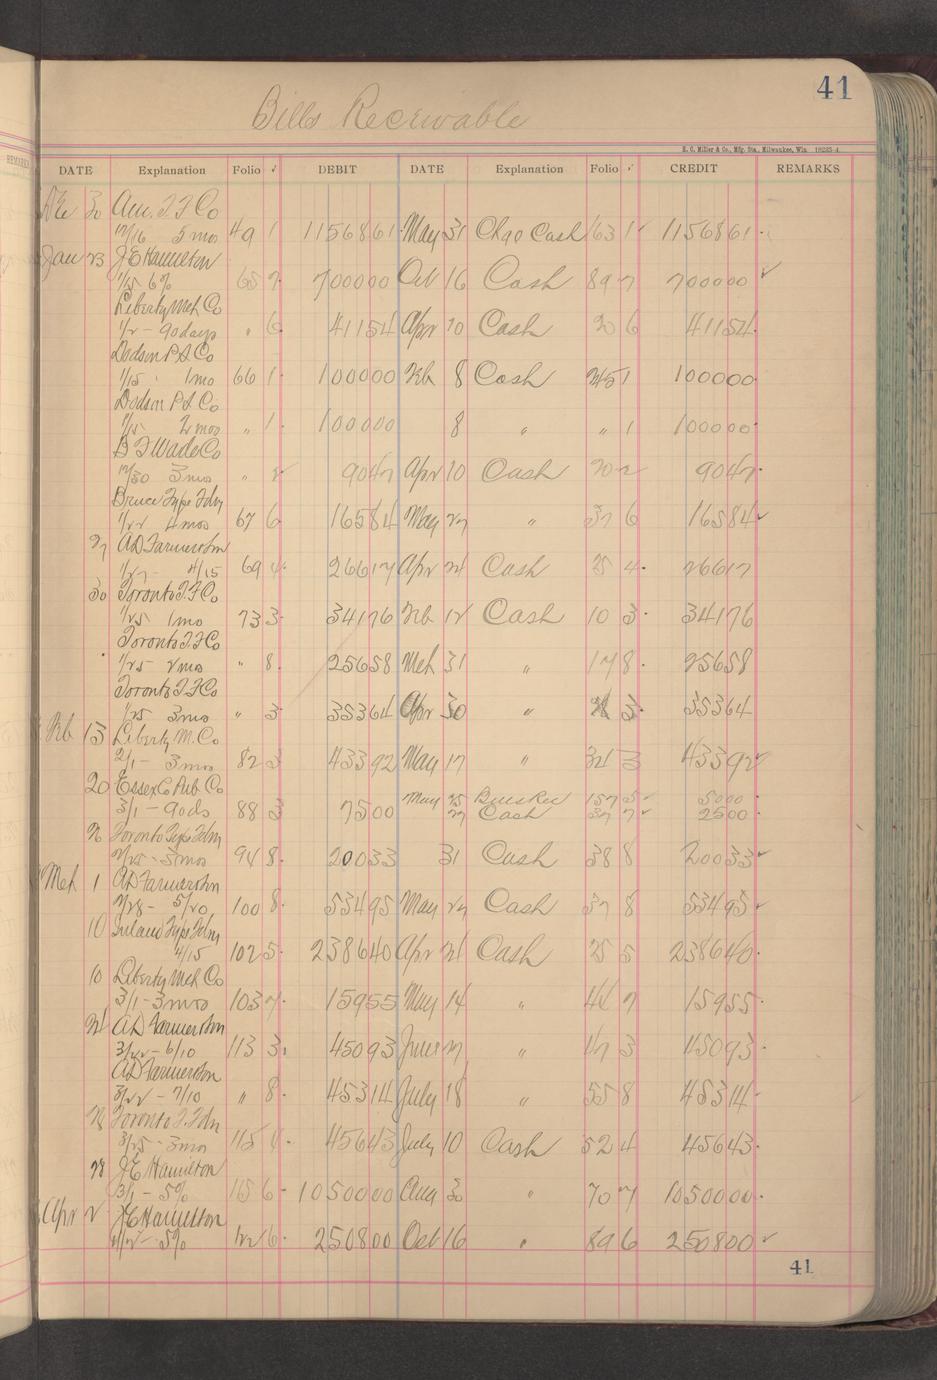 41
Bills Receivable
E. C. Miller & Co., Mfg. Sta., Milwaukee, Wis. 18235-4
REMARKS
DATE Explanation Folio √ DEBIT DATE Explanation Folio √ CREDIT REMARKS
Dec 30 Am. T F Co
12/16 5 mos 49 1 1156861 May 31 Chgo Cash 163 1 1156861
Jan 23 J E Hamilton
1/15 6% 65 7 700000 Oct 16 Cash 89 7 700000 √
Liberty Meh Co
1/2 - 90 days " 6 41154 Apr 10 Cash 20 6 41154
Dodson P S Co
1/15 1 mo 66 1 100000 Feb 8 Cash 1 100000
Dodson P S Co
1/15 2 mos " 1 100000 8 " " 1 100000
B F Wade Co
12/30 3 mos " 2 9047 Apr 10 Cash 20 2 9047
Bruce Type Fdry
1/22 4 mos 67 6 16584 May 27 " 37 6 16584 √
27 AD Farmer & Son
1/27 - 4/15 69 4 26617 Apr 21 Cash 25 4 26617
30 Toronto T. F Co
1/25 1 mo 73 3 34176 Feb 12 Cash 10 3 34176
Toronto T F Co
1/25 2 mos " 8 25658 Mch 31 " 17 8 25658
Toronto T F Co
1/25 3 mos " 3 35364 Apr 30 " 3 35364
Feb 13 Liberty M. Co
2/1 - 3 mos 82 3 43392 May 17 " 34 3 43392 √
20 Essex Co Pub. Co May 25 157 5 5000
3/1 - 90 ds 88 3 7500 27 Cash 37 7 2500
26 Toronto Type Fdry
2/25 - 3 mos 94 8 20033 31 Cash 38 8 20033 √
Mch 1 AD Farmer & Son
2/28 - 5/20 100 8 53495 May 27 Cash 37 8 53495 √
10 Inland Type Fdry
4/15 102 5 238640 Apr 21 Cash 25 5 238640
10 Liberty Meh Co
3/1 - 3 mos 103 7 15955 May 14 " 7 15955
21 AD Farmer & Son
3/22 - 6/10 113 3 45093 June 27 " 47 3 45093
AD Farmer & Son
3/22 - 7/10 " 8 45314 July 18 " 55 8 45314
28 Toronto T. Fdry
3/25 - 3 mos 115 4 45643 July 10 Cash 52 4 45643
28 J E Hamilton
3/1 - 5% 115 6 1050000 Aug 30 " 70 7 1050000
Apr 2 J E Hamilton
5% 122 6 250800 Oct 16 " 89 6 250800 √
41